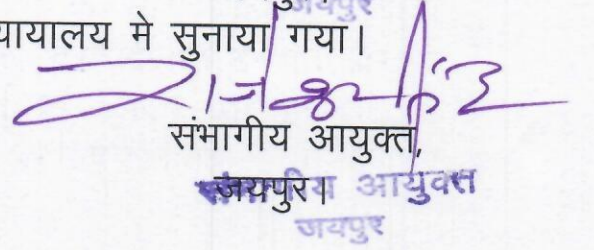 जयपुर
यायालय मे सुनाया गया।
संभागीय आयुक्त,
जयपुर।
संभागीय आयुक्त
जयपुर